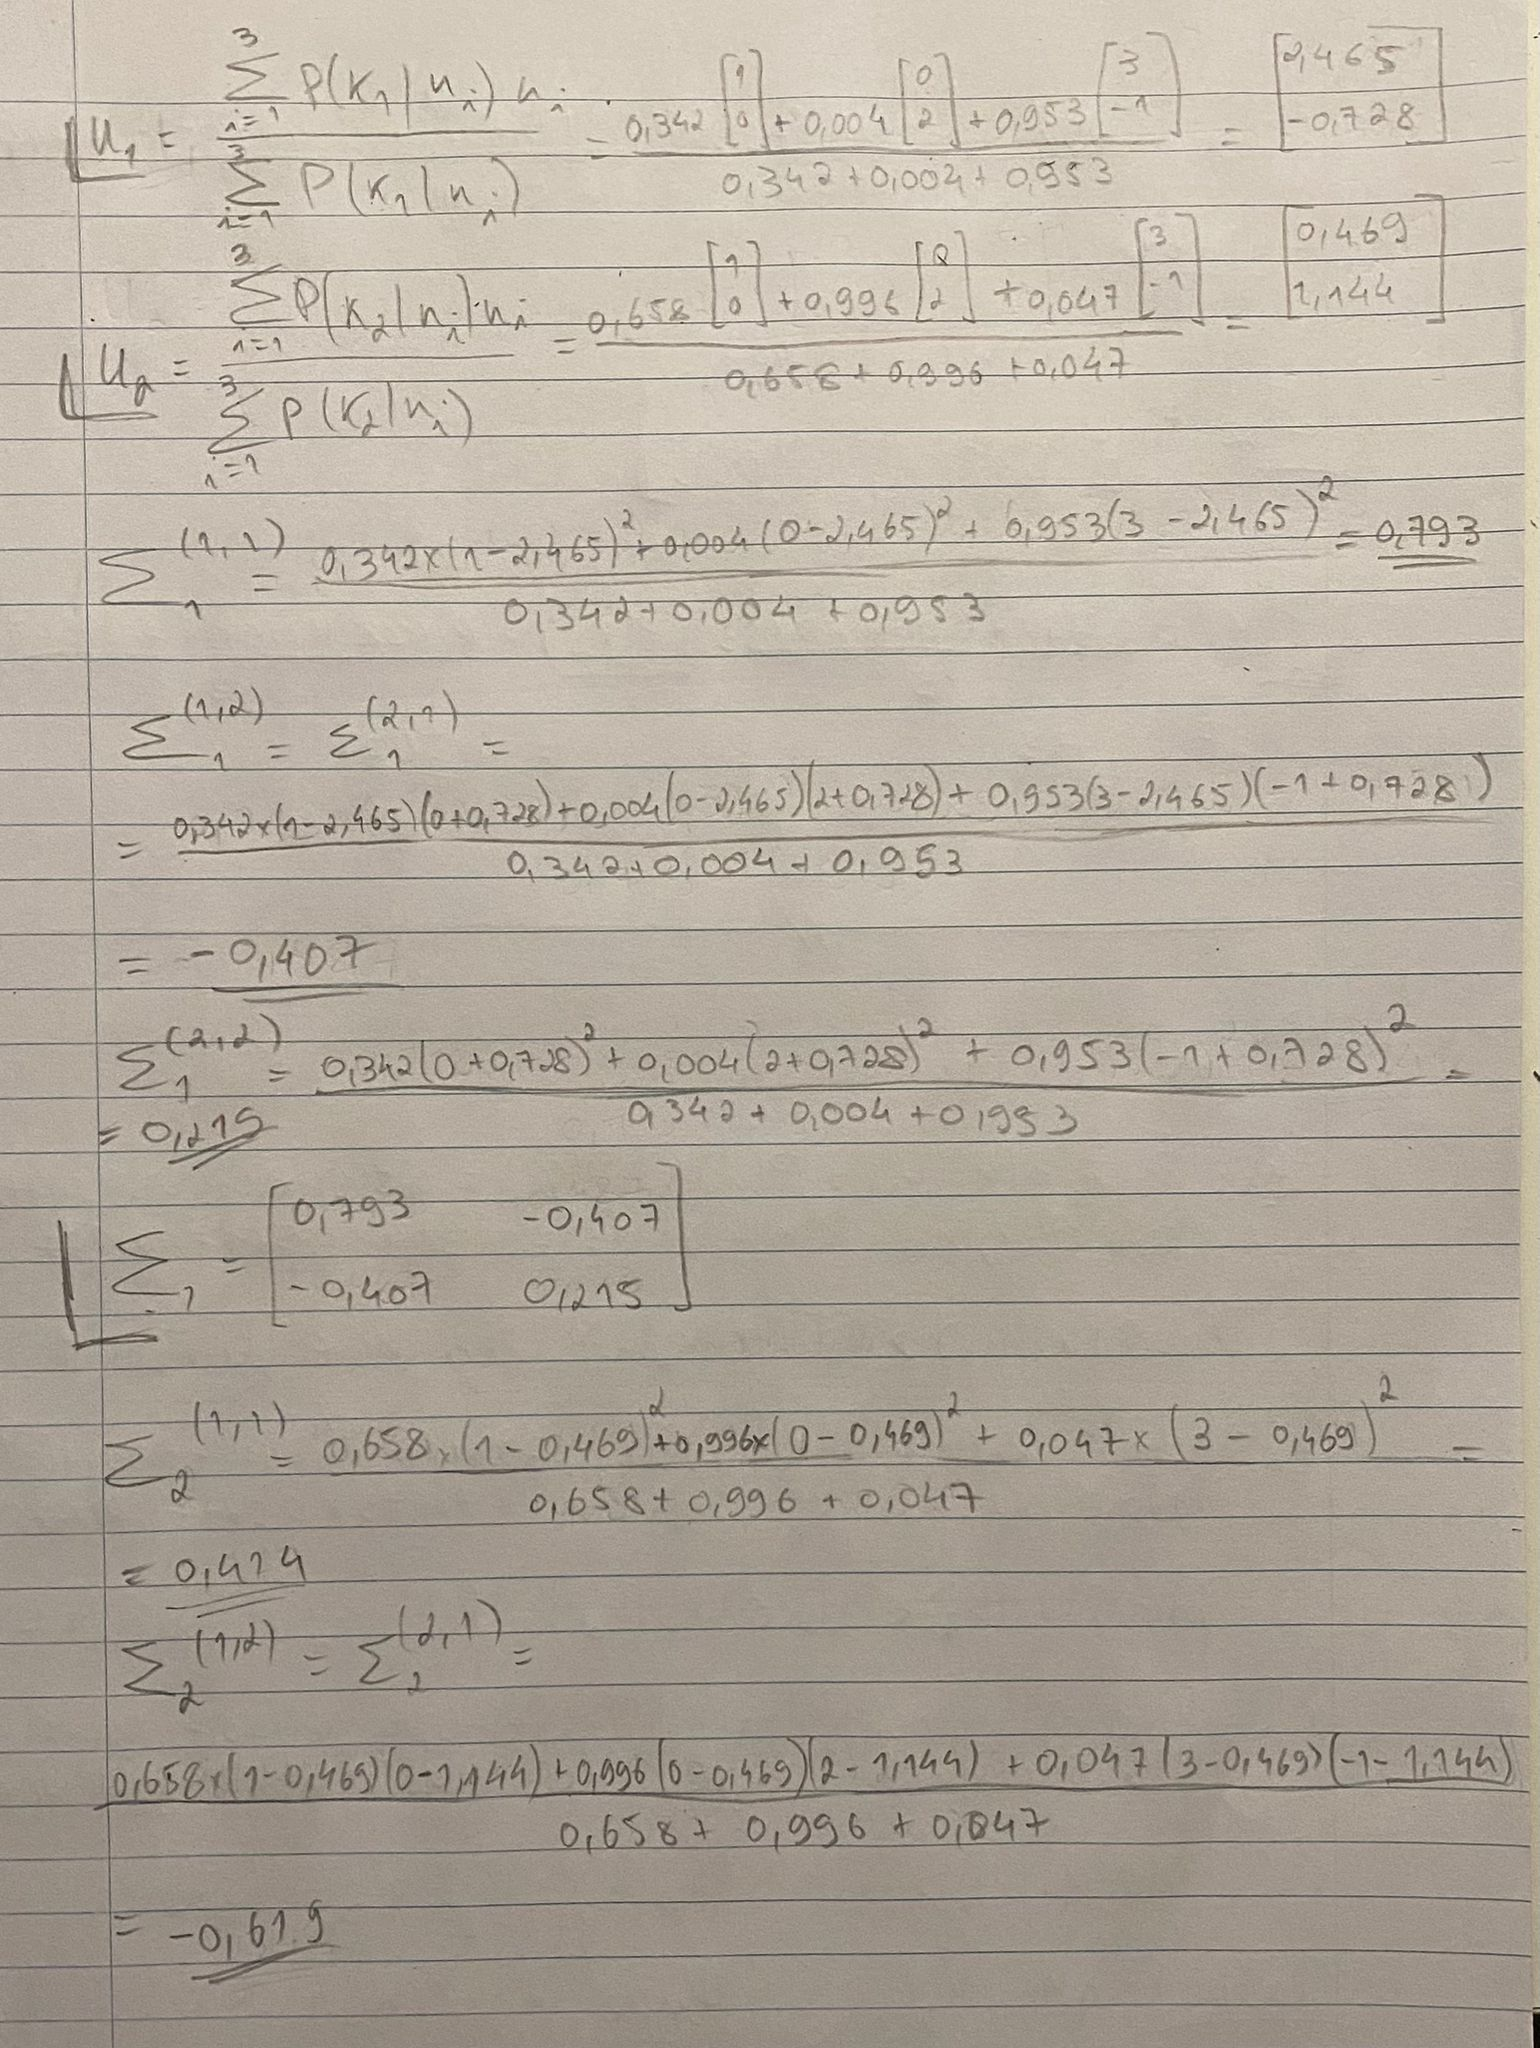 u₁ = (∑_{i=1}^{3} P(K₁|x_i) x_i) / (∑_{i=1}^{3} P(K₁|x_i)) = (0,342 [1 0] + 0,004 [0 2] + 0,953 [3 -1]) / (0,342+0,004+0,953) = [2,465 -0,728]
u₂ = (∑_{i=1}^{3} P(K₂|x_i)·x_i) / (∑_{i=1}^{3} P(K₂|x_i)) = (0,658 [1 0] + 0,996 [0 2] + 0,047 [3 -1]) / (0,658+0,996+0,047) = [0,469 1,144]
∑₁^(1,1) = (0,342×(1-2,465)²+0,004(0-2,465)² + 0,953(3-2,465)²) / (0,342+0,004+0,953) = 0,793
∑₁^(1,2) = ∑₁^(2,1) =
= (0,342×(1-2,465)(0+0,728)+0,004(0-2,465)(2+0,728)+0,953(3-2,465)(-1+0,728)) / (0,342+0,004+0,953)
= -0,407
∑₁^(2,2) = (0,342(0+0,728)²+0,004(2+0,728)² + 0,953(-1+0,728)²) / (0,342+0,004+0,953) =
= 0,215
∑₁ = [0,793 -0,407
-0,407 0,215]
∑₂^(1,1) = (0,658×(1-0,469)²+0,996×(0-0,469)² + 0,047×(3-0,469)²) / (0,658+0,996+0,047) =
= 0,414
∑₂^(1,2) = ∑₂^(2,1) =
(0,658×(1-0,469)(0-1,144)+0,996(0-0,469)(2-1,144)+0,047(3-0,469)(-1-1,144)) / (0,658+0,996+0,047)
= -0,619